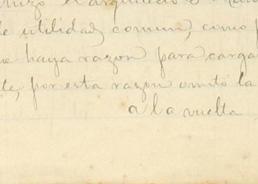 hizo el arquitecto
de utilidad comun, como p
haya razon para carga
te, por esta razon omito la
a la vuelta